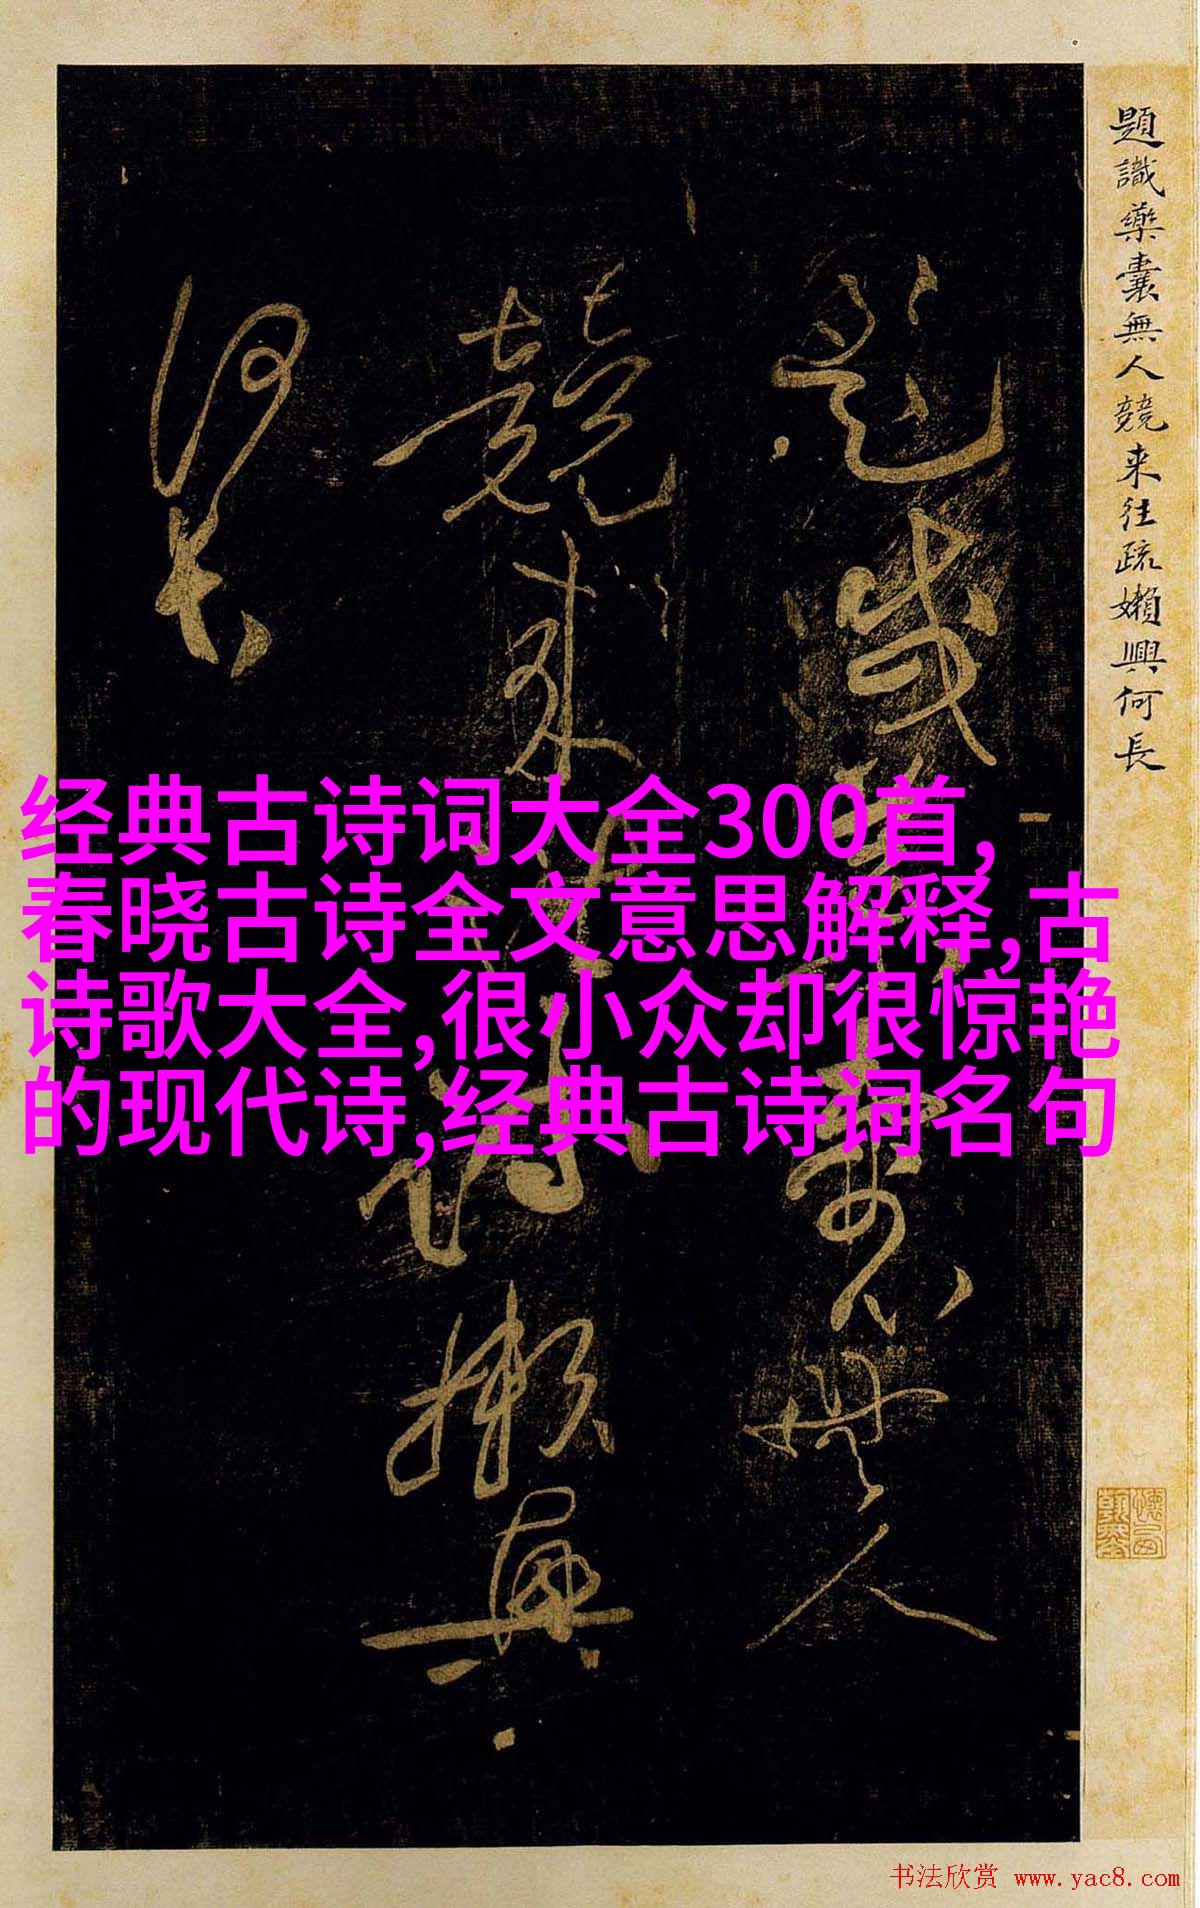 题識藥囊無人競来往疏嬾興何長
经典古诗词大全300首,
春晓古诗全文意思解释,古
诗歌大全,很小众却很惊艳
的现代诗,经典古诗词名句
題
識
無
人
競
来
嬾
興
何
長
书法欣赏 www.yac8.com